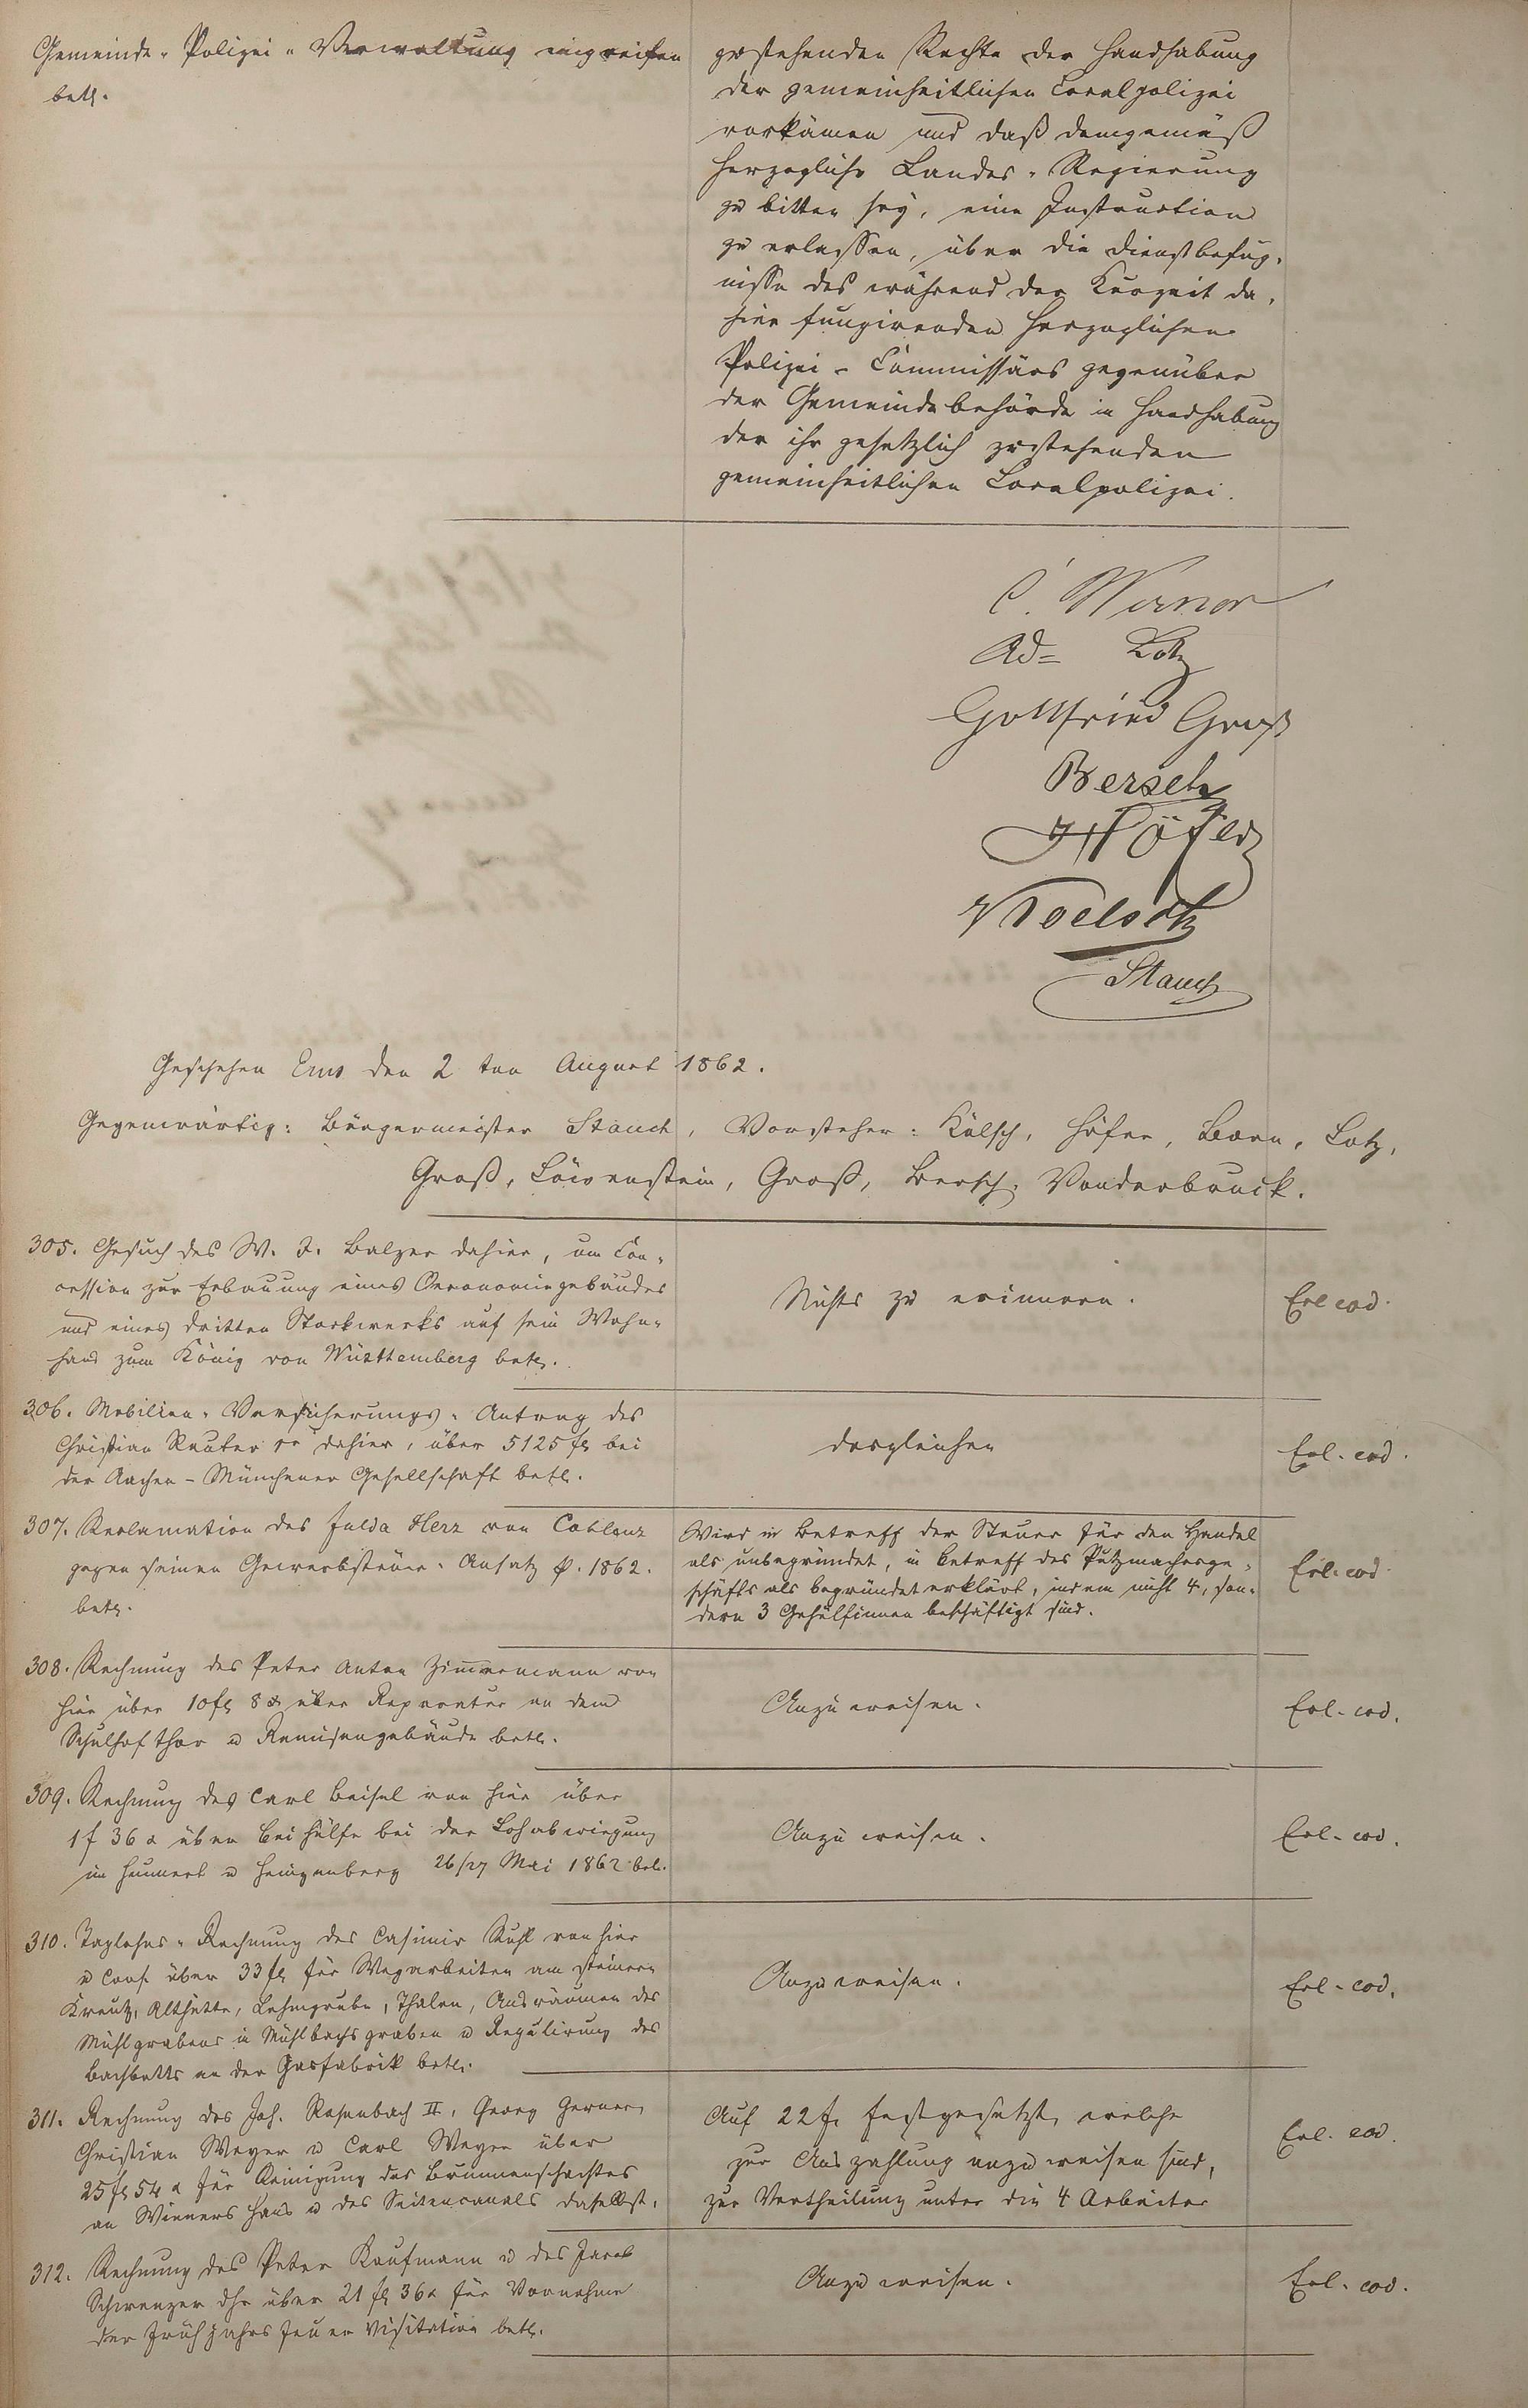 Gemeinde-Polizei-Verwaltung eingreifen
betr.
zustehenden Rechte der Handhabung
der gemeinheitlichen Localpolizei
vorkämen und daß demgemäß
Herzogliche Landes-Regierung
zu bitten sey, eine Instruction
zu erlassen, über die Dienstbefug-
nisse des während der Kurzeit da-
hier fungirenden Herzoglichen
Polizei-Commissärs gegenüber
der Gemeindebehörde in Handhabung
der ihr gesetzlich zustehenden
gemeinheitlichen Localpolizei.
C. Werner
Ad= Lotz
Gottfried Groß
Bersch
Höfer
Koelsch
Stauch
Geschehen Ems den 2 ten August 1862.
Gegenwärtig: Bürgermeister Stauch, Vorsteher: Kölsch, Höfer, Lotz,
Groß, Löwenstein, Groß, Bersch, Vonderbruck.
305. Gesuch des W. J. Balzer dahier, um Con-
cession zur Erbauung eines Oeconomiegebäudes
und eines dritten Stockwerks auf sein Wohn-
haus zum König von Württemberg betr.
Nichts zu erinnern.
Erl. eod.
306. Mobilien-Versicherungs-Antrag des
Christian Reuter sr dahier, über 5125 fl bei
der Aachen-Münchener Gesellschaft betr.
desgleichen
Erl. eod.
307. Reclamation des Julda Herz von Coblenz
gegen seinen Gewerbsteuer-Ansatz p. 1862.
betr.
Wird in Betreff der Steuer für den Handel
als unbegründet, in Betreff des Putzmacherge-
schäfts als begründet erklärt, indem nicht 4, son-
dern 3 Gehülfinnen beschäftigt sind.
Erl. eod.
308. Rechnung des Peter Anton Zimmermann von
hier über 10 fl 8 x über Reparatur an dem
Schulhofthor u Remisengebäude betr.
Anzuweisen.
Erl. eod.
309. Rechnung des Carl Beisel von hier über
1 f 36 x über Beihülfe bei der Lohabwiegung
im u 26/27 Mai 1862 betr.
Anzuweisen.
Erl. eod.
310. Taglohns-Rechnung des Casimir Kuhl von hier
u Cons. über 33 fl für Wegarbeiten am steinern
Kreutz, Althütte, Lehmgrube, Thalen, Ausräumen des
Mühlgrabens u Mühlbachsgraben u Regulirung des
Bachbetts an der Gasfabrik betr.
Anzuweisen.
Erl. eod.
311. Rechnung des Joh. Rosenbach II, Georg Germer,
Christian Weyer u Carl Weyer über
25 fl 54 x für Reinigung des Brunnenschachtes
an Wieners Haus u des Seitencanals daselbst.
Auf 22 f. festgesetzt, welche
zur Auszahlung anzuweisen sind,
zur Vertheilung unter die 4 Arbeiter
Erl. eod.
312. Rechnung des Peter Kaufmann u des Jacob
Schweuzer dhr über 21 fl 36 x für Vornahme
der Frühjahrs Feuer Visitation betr.
Anzuweisen.
Erl. eod.